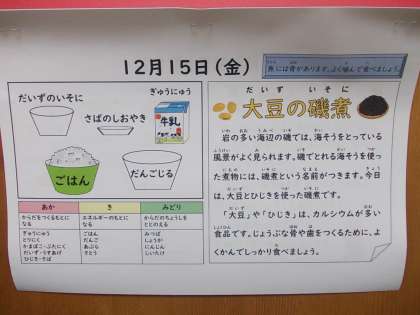 12月15日(金)
魚には骨があります。よく噛んで食べましょう。
だいずのいそに
ぎゅうにゅう
さばのしおやき
牛乳
ごはん
だんごじる
あか
き
みどり
からだをつくるもとになる
エネルギーのもとになる
からだのちょうしをととのえる
ぎゅうにゅう
とりにく
かまぼこ・ぶたにく
だいず・うすあげ
ひじき・さば
ごはん
だんご
あぶら
さとう
みつば
しょうが
にんじん
しいたけ
だいず いそに
大豆の磯煮
岩の多い海辺の磯では、海そうをとっている
風景がよく見られます。磯でとれる海そうを使っ
た煮物には、磯煮という名前がつきます。今日
は、大豆とひじきを使った磯煮です。
「大豆」や「ひじき」は、カルシウムが多い
食品です。じょうぶな骨や歯をつくるために、よ
くかんでしっかり食べましょう。